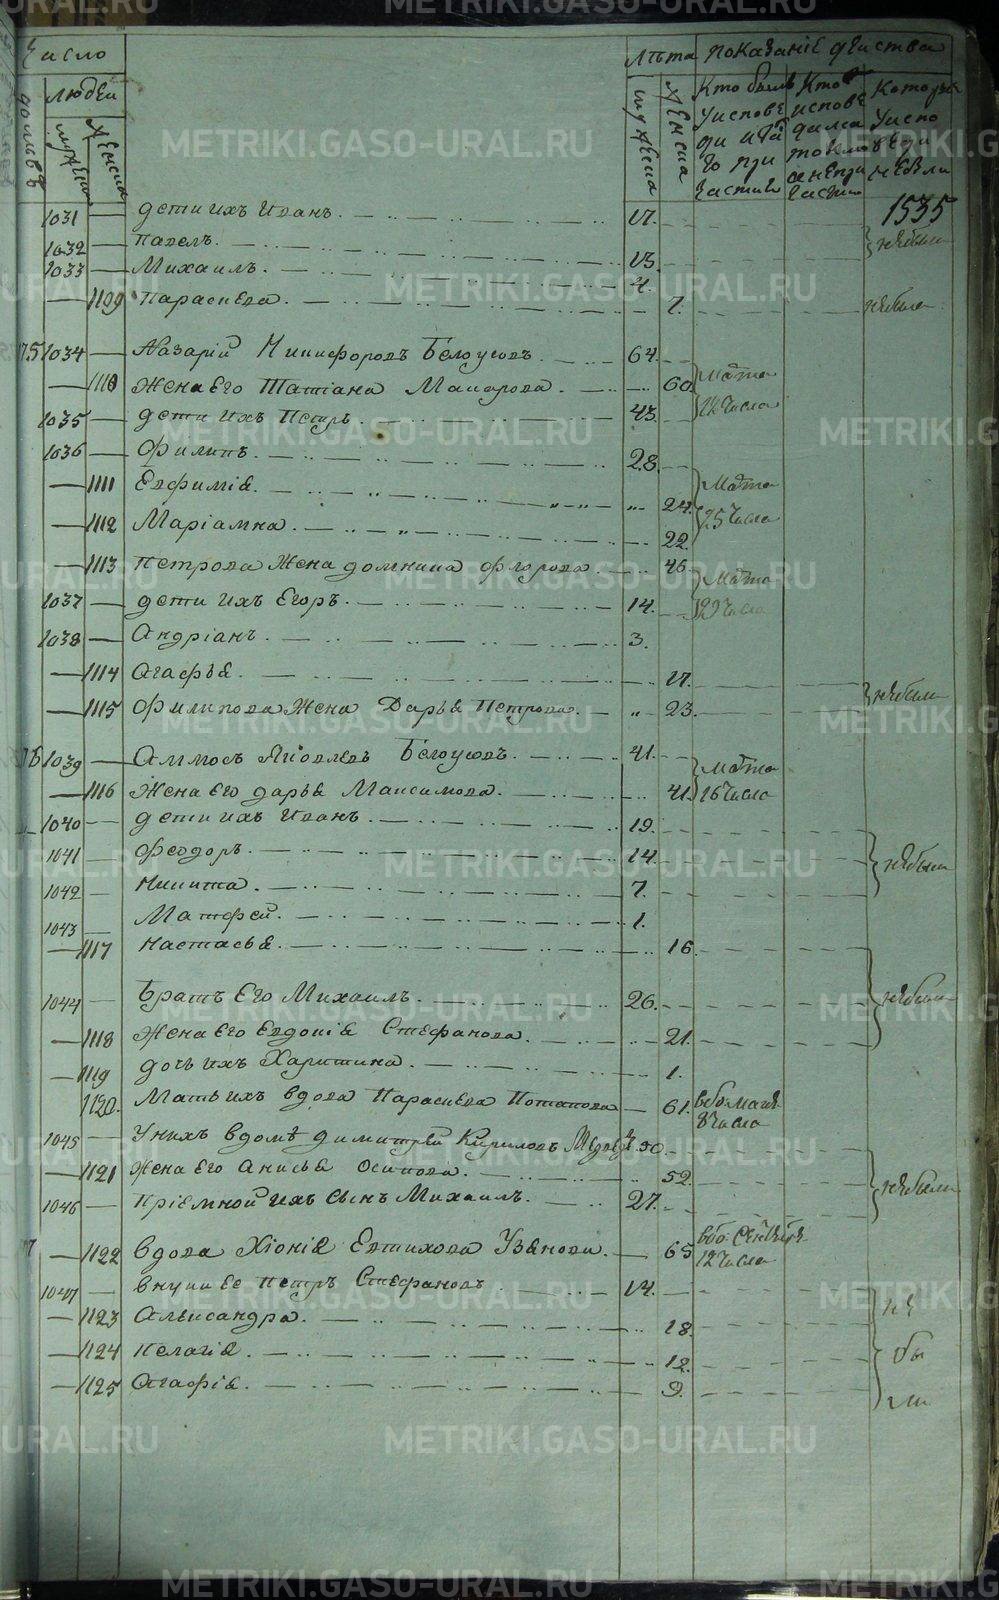 Число
Лѣта показаніе дѣиства
людей
мужеска
женска
мужеска
женска
Кто былъ у исповеди и Та го причастия
Кто исповедился токмо а не причастил
Которые у исповеди небыли
1535
1031 — дети ихъ Иванъ. 17.
1032 — Павелъ. 13. небыли
1033 — Михаилъ. 4.
— 1109 Параскева. 7. небыла
75 1034 — Назарій Никифоровъ Белоусовъ. 64.
— 1110 Жена Его Татіана Макарова. 60. Марта
1035 — дети ихъ Петръ. 43. 22 числа
1036 — Филипъ. 28.
— 1111 Евфимія. 24. Марта
— 1112 Маріамна. 22. 25 числа
— 1113 Петрова Жена домника Флорова 46. Марта
1037 — дети ихъ Егоръ. 14. 29 числа
1038 — Андріанъ. 3.
— 1114 Агафья. 17. небыли
— 1115 Филипова Жена Дарья Петрова. 23.
76 1039 — Аммосъ Яковлевъ Белоусовъ. 41. Марта
— 1116 Жена Его дарья Максимова. 41. 16 числа
1040 — дети ихъ Иванъ. 19.
1041 — Феодоръ. 14. небыли
1042 — Никита. 7.
1043 — Матфей. 1.
— 1117 Настасья. 16.
1044 — Братъ Его Михаилъ. 26. небыли
— 1118 Жена Его Евдокія Стефанова. 21.
— 1119 дочь ихъ Харитина. 1.
1120. Мать ихъ вдова Параскева Потапова — 61. 8 числа
1045 — У нихъ вдомѣ димитрей Кириловъ 50.
— 1121 Жена Его Анисья Осипова. 52. небыли
1046 — Пріемной ихъ сынъ Михаилъ. 27.
77 — 1122 вдова Хіонія Евтихова Узянова. — 65 12 числа
1047 — внуки ее Петръ Стефановъ 14. не
— 1123 Александра. 18.
— 1124 Пелагія. 12. бы
— 1125 Агафія. 9. ли
METRIKI.GASO-URAL.RU